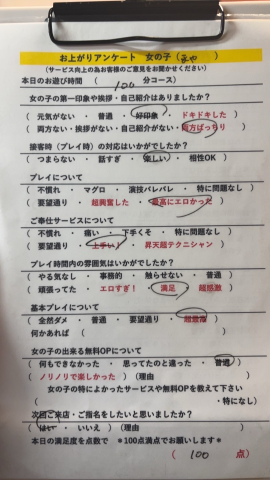 お上がりアンケート 女の子（まや）
（サービス向上の為お客様のご意見をお聞かせください）
本日のお遊び時間（ 100 分コース）
女の子の第一印象や挨拶・自己紹介はありましたか？
（ 元気がない ・ 普通 ・ 好印象 ・ ドキドキした
（ 両方ない・挨拶がない・自己紹介がない・両方ばっちり
接客時（プレイ時）の対応はいかがでしたか？
（ つまらない ・ 話すぎ ・ 楽しい ・ 相性OK ）
プレイについて
（ 不慣れ ・ マグロ ・ 演技バレバレ ・ 特に問題なし ）
（ 要望通り ・ 超興奮した ・ 最高にエロかった
ご奉仕サービスについて
（ 不慣れ ・ 痛い ・ 下手くそ ・ 特に問題なし ）
（ 要望通り ・ 上手い！ ・ 昇天超テクニシャン ）
プレイ時間内の雰囲気はいかがでしたか？
（ やる気なし ・ 事務的 ・ 触らせない ・ 普通 ）
（ 頑張ってた ・ エロすぎ！ ・ 満足 ・ 超感激 ）
基本プレイについて
（ 全然ダメ ・ 普通 ・ 要望通り ・ 超最高
何かあれば（ ）
女の子の出来る無料OPについて
（ 何もできなかった ・ 思ってたのと違った ・ 普通
（ ノリノリで楽しかった ）（理由 ）
女の子の特によかったサービスや無料OPを教えて下さい
（ ・特になし）
次回ご来店・ご指名をしたいと思いましたか？
（ はい ・ いいえ ）（理由 ）
本日の満足度を点数で ＊100点満点でお願いします＊
（ 100 点）